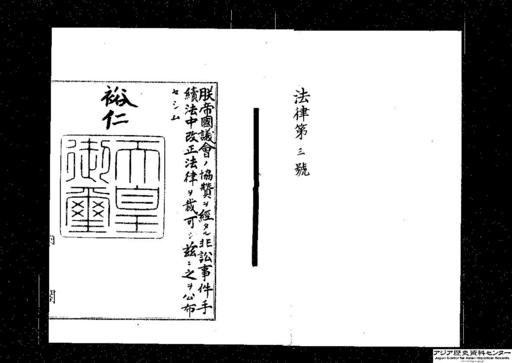 法律第三號
朕帝國議會ノ協贊ヲ經タル非訟事件手
續法中改正法律ヲ裁可シ茲ニ之ヲ公布
セシム
裕仁
天皇
御璽
アジア歴史資料センター
Japan Center for Asian Historical Records